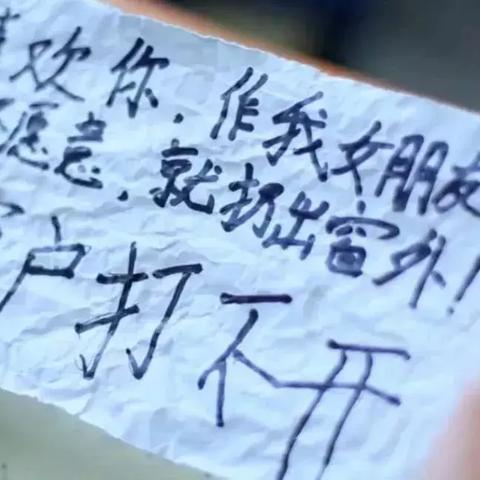 喜欢你,作我女朋友
不愿意,就扔出窗外!
窗户打不开